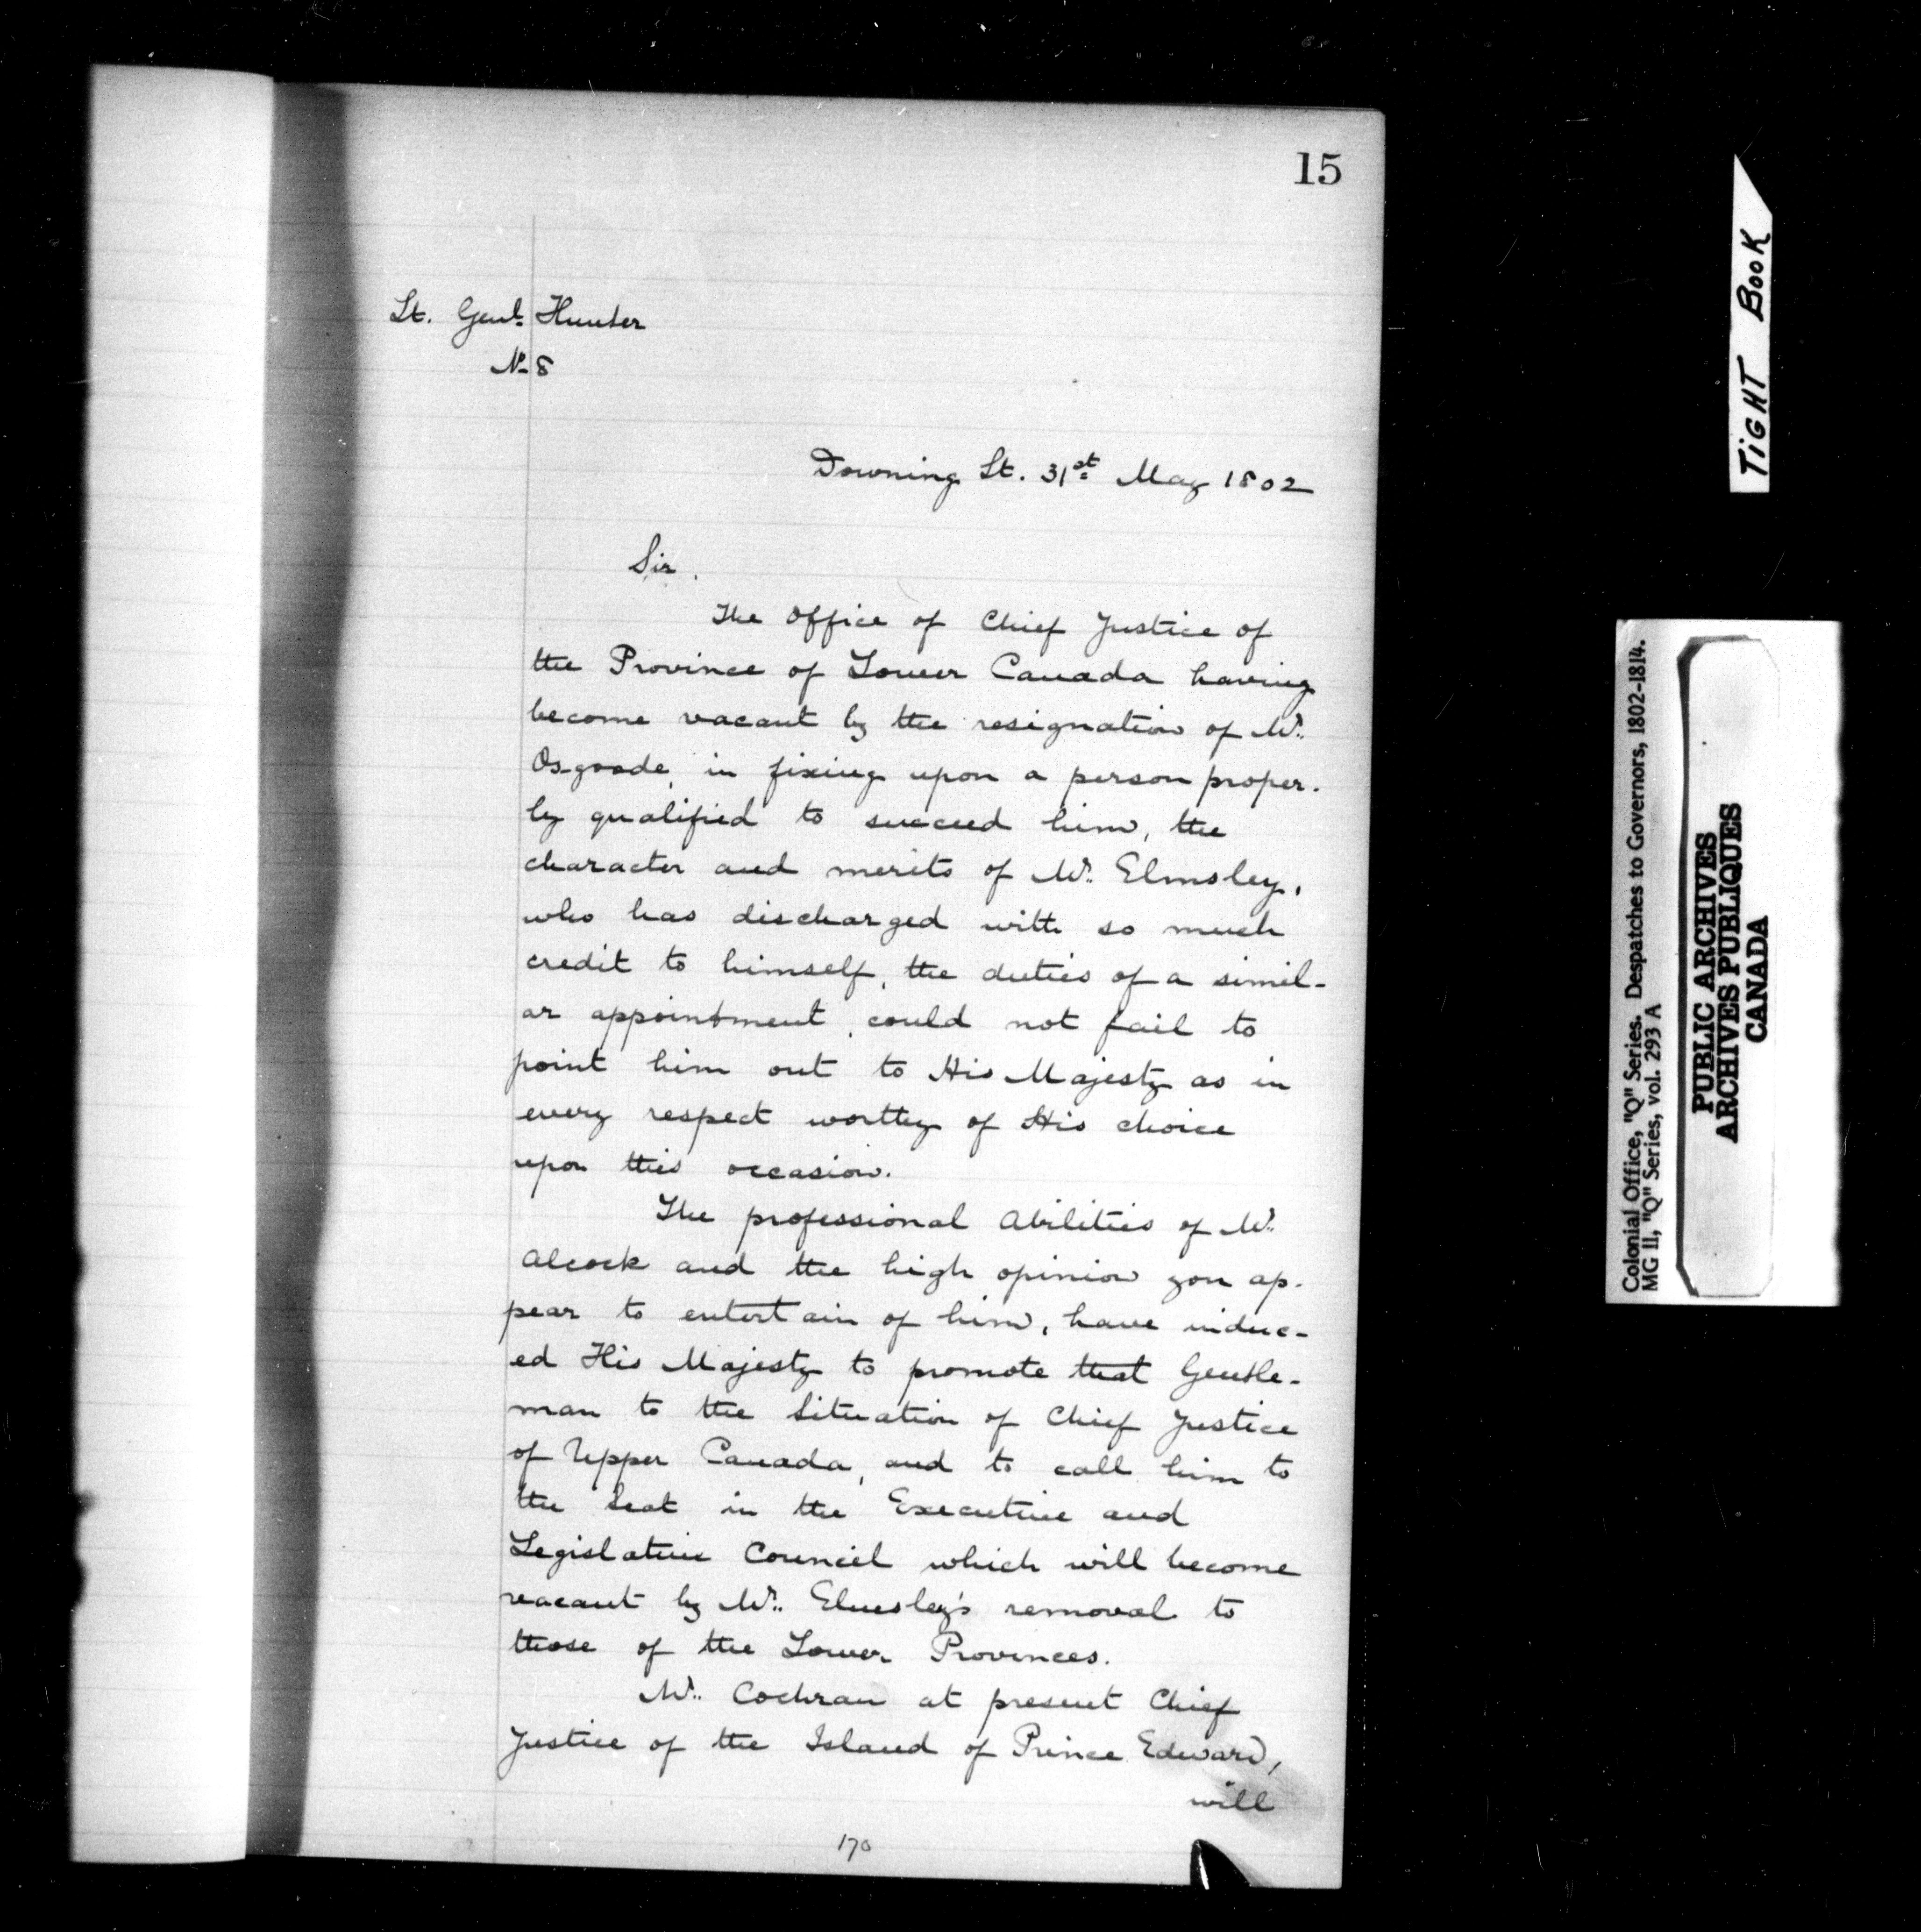 15
Lt. Genl. Hunter
No 8
Downing St. 31st May 1802
Sir.
The Office of Chief Justice of
the Province of Lower Canada having
become vacant by the resignation of Mr.
Osgoode, in fixing upon a person proper-
ly qualified to succeed him, the
character and merits of Mr. Elmsley,
who has discharged with so much
credit to himself, the duties of a simil-
ar appointment, could not fail to
point him out to His Majesty as in
every respect worthy of His choice
upon this occasion.
The professional Abilities of Mr.
Alcock and the high opinion you ap-
pear to entertain of him, have induc-
ed His Majesty to promote that Gentle-
man to the Situation of Chief Justice
of Upper Canada, and to call him to
the Seat in the Executive and
Legislative Council which will become
vacant by Mr. Elmsley's removal to
those of the Lower Provinces.
Mr. Cochran at present Chief
Justice of the Island of Prince Edward,
will
170
TIGHT BOOK
Colonial Office, "Q" Series. Despatches to Governors, 1802-1814.
MG 11, "Q" Series, vol. 293 A
PUBLIC ARCHIVES
ARCHIVES PUBLIQUES
CANADA